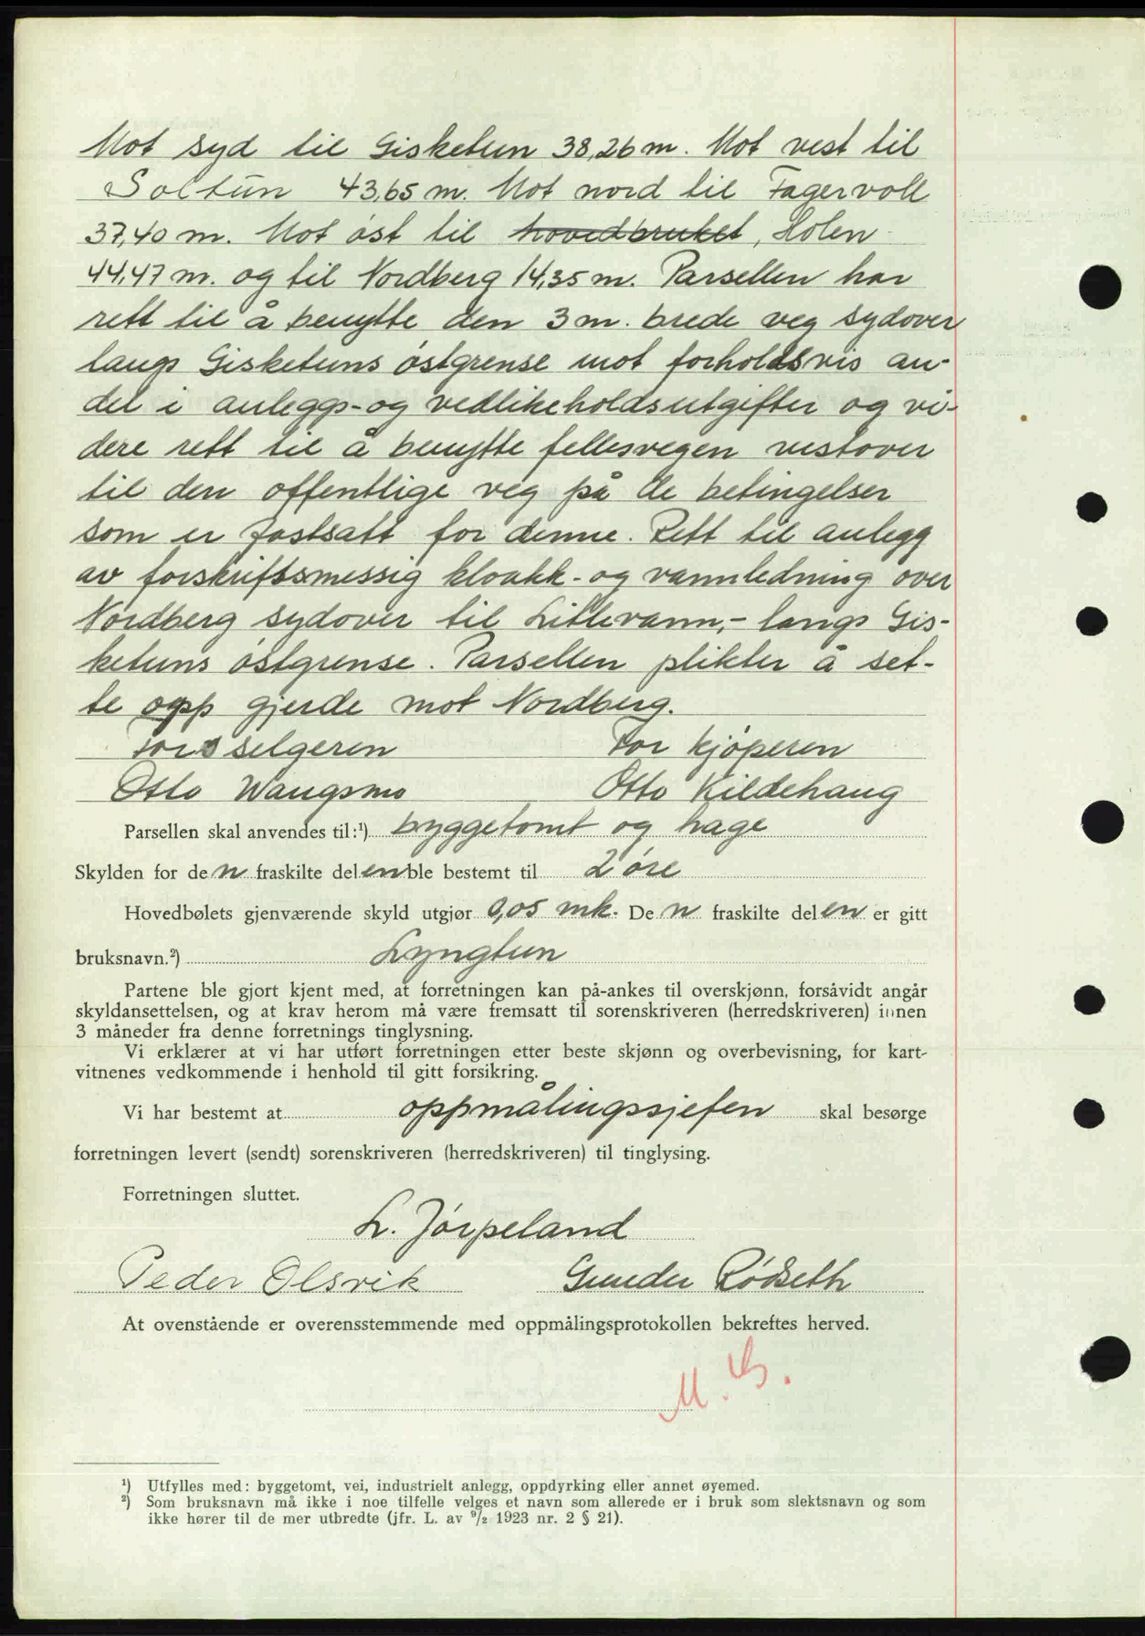 Mot syd til Gisketun 38,26 m. Mot vest til
Soltun 43,65 m. Mot nord til Fagervoll
37,40 m. Mot øst til hovedbruket, Holen
44,47 m. og til Nordberg 14,35 m. Parsellen har
rett til å benytte den 3 m. brede veg sydover
langs Gisketuns østgrense mot forholdsvis an-
del i anleggs- og vedlikeholdsutgifter og vi-
dere rett til å benytte fellesvegen vestover
til den offentlige veg på de betingelser
som er fastsatt for denne. Rett til anlegg
av forskriftsmessig kloakk- og vannledning over
Nordberg sydover til Litlevann,- langs Gis-
ketuns østgrense. Parsellen plikter å set-
te opp gjerde mot Nordberg.
For selgeren For kjøperen
Otto Waugsmo Otto Kildehaug
Parsellen skal anvendes til:¹) byggetomt og hage
Skylden for den fraskilte delen ble bestemt til 2 øre
Hovedbølets gjenværende skyld utgjør 0,05 mk. Den fraskilte delen er gitt
bruksnavn.²) Lyngtun
Partene ble gjort kjent med, at forretningen kan på-ankes til overskjønn, forsåvidt angår
skyldansettelsen, og at krav herom må være fremsatt til sorenskriveren (herredskriveren) innen
3 måneder fra denne forretnings tinglysning.
Vi erklærer at vi har utført forretningen etter beste skjønn og overbevisning, for kart-
vitnenes vedkommende i henhold til gitt forsikring.
Vi har bestemt at oppmålingssjefen skal besørge
forretningen levert (sendt) sorenskriveren (herredskriveren) til tinglysing.
Forretningen sluttet.
L. Jørpeland
Peder Olsvik Gunder Rødseth
At ovenstående er overensstemmende med oppmålingsprotokollen bekreftes herved.
¹) Utfylles med: byggetomt, vei, industrielt anlegg, oppdyrking eller annet øyemed.
²) Som bruksnavn må ikke i noe tilfelle velges et navn som allerede er i bruk som slektsnavn og som
ikke hører til de mer utbredte (jfr. L. av ⁹/₂ 1923 nr. 2 § 21).